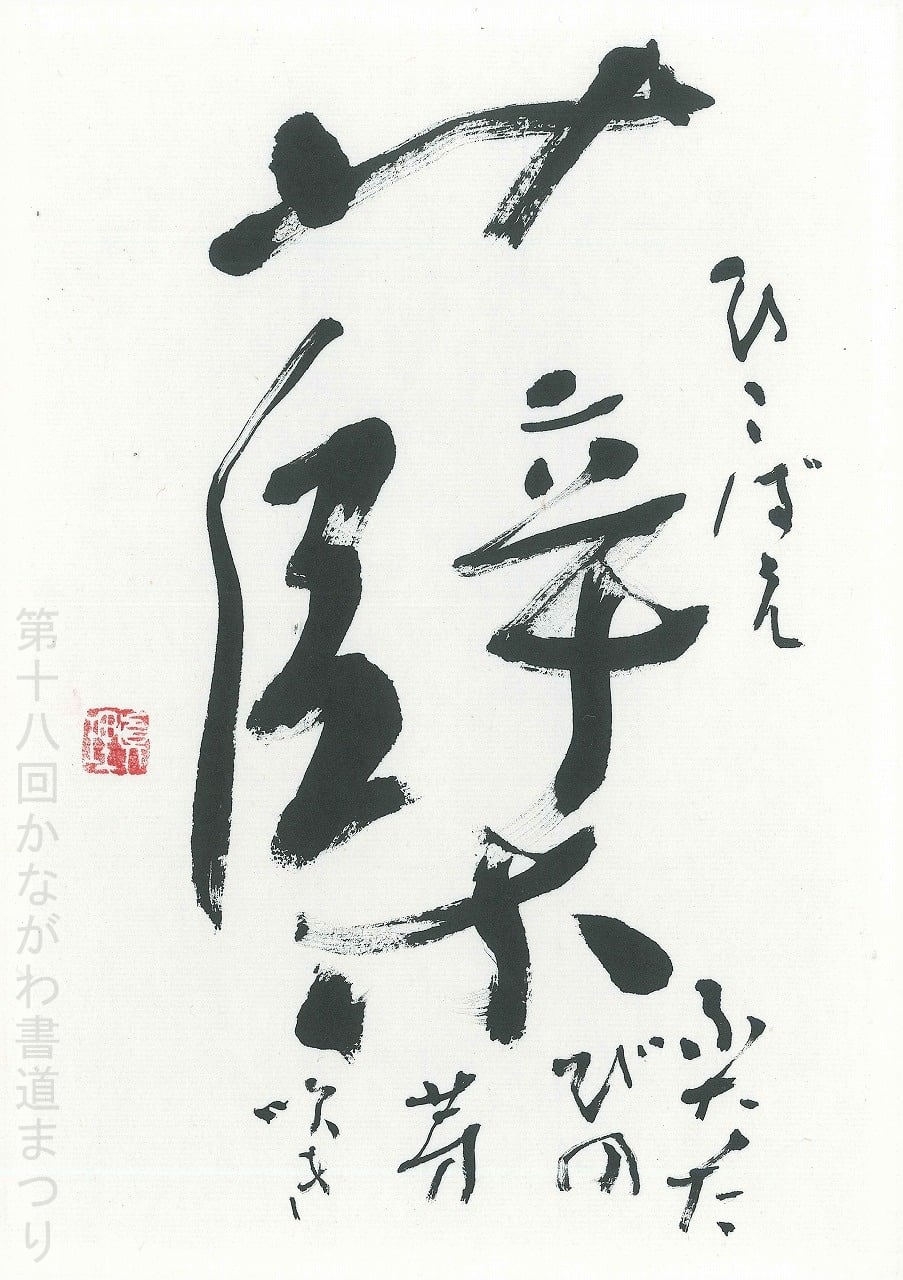 ひこばえ
蘖
ふたた
びの
芽
吹き
第十八回かながわ書道まつり